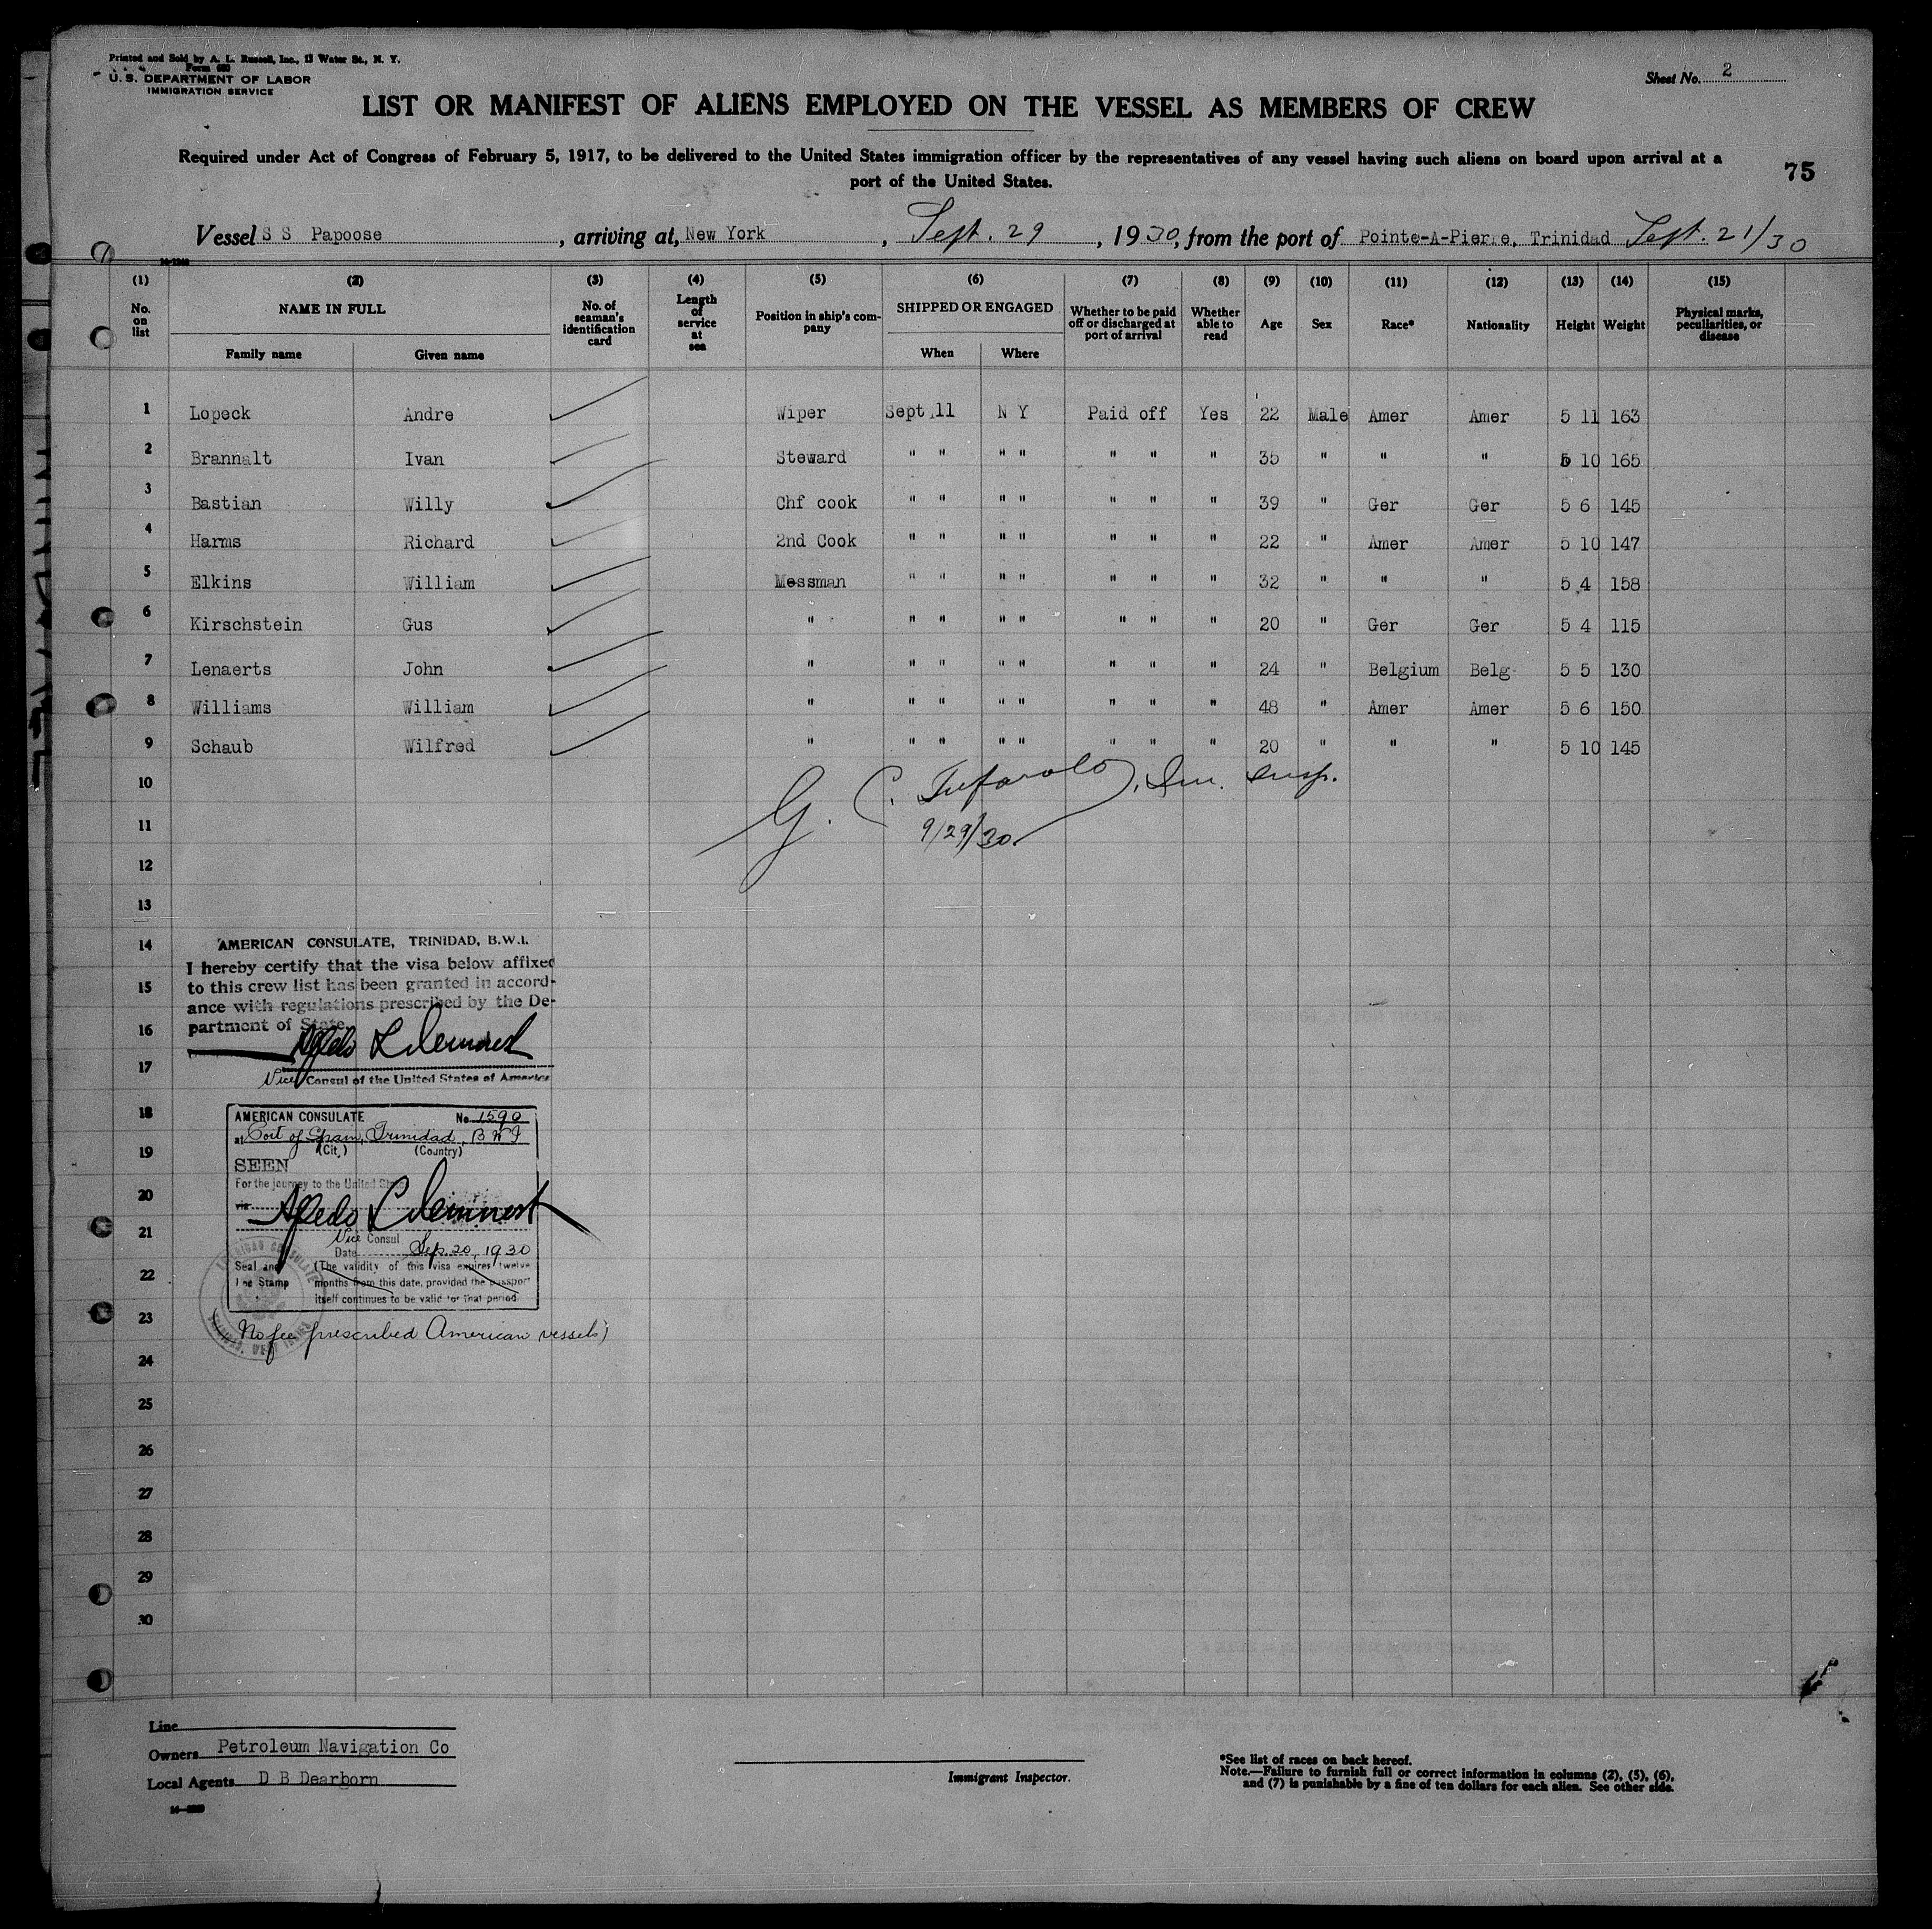 Printed and Sold by A. L. Russell, Inc., 13 Water St., N. Y.
Form 680
U. S. DEPARTMENT OF LABOR
IMMIGRATION SERVICE
Sheet No. 2
LIST OR MANIFEST OF ALIENS EMPLOYED ON THE VESSEL AS MEMBERS OF CREW
Required under Act of Congress of February 5, 1917, to be delivered to the United States immigration officer by the representatives of any vessel having such aliens on board upon arrival at a
port of the United States.
75
Vessel S S Papoose, arriving at, New York, Sept. 29, 1930, from the port of Pointe-A-Pierre, Trinidad Sept. 21/30
(1) (2) (3) (4) (5) (6) (7) (8) (9) (10) (11) (12) (13) (14) (15)
No. on list NAME IN FULL No. of seaman's identification card Length of service at sea Position in ship's company SHIPPED OR ENGAGED Whether to be paid off or discharged at port of arrival Whether able to read Age Sex Race* Nationality Height Weight Physical marks, peculiarities, or disease
Family name Given name When Where
1 Lopeck Andre Wiper Sept 11 N Y Paid off Yes 22 Male Amer Amer 5 11 163
2 Brannalt Ivan Steward " " " " " " " 35 " " " 5 10 165
3 Bastian Willy Chf cook " " " " " " " 39 " Ger Ger 5 6 145
4 Harms Richard 2nd Cook " " " " " " " 22 " Amer Amer 5 10 147
5 Elkins William Messman " " " " " " " 32 " " " 5 4 158
6 Kirschstein Gus " " " " " " " " 20 " Ger Ger 5 4 115
7 Lenaerts John " " " " " " " " 24 " Belgium Belg 5 5 130
8 Williams William " " " " " " " " 48 " Amer Amer 5 6 150
9 Schaub Wilfred " " " " " " " " 20 " " " 5 10 145
10
G. C. Tufarolo, Im. Insp.
11
9/29/30
12
13
14
AMERICAN CONSULATE, TRINIDAD, B.W.I.
I hereby certify that the visa below affixed
15
to this crew list has been granted in accord-
ance with regulations prescribed by the De-
16
partment of State.
17
Vice Consul of the United States of America
18
AMERICAN CONSULATE No 1590
at Port of Spain, Trinidad, B W I
19
(City) (Country)
SEEN
For the journey to the United States
20
via
21
Vice Consul
Date Sep. 20, 1930
22
Seal and (The validity of this visa expires twelve
Fee Stamp months from this date, provided the passport
itself continues to be valid for that period
23
(No fee prescribed American vessels)
24
25
26
27
28
29
30
Line
Owners Petroleum Navigation Co
Local Agents D B Dearborn
Immigrant Inspector.
*See list of races on back hereof.
Note.—Failure to furnish full or correct information in columns (2), (5), (6),
and (7) is punishable by a fine of ten dollars for each alien. See other side.